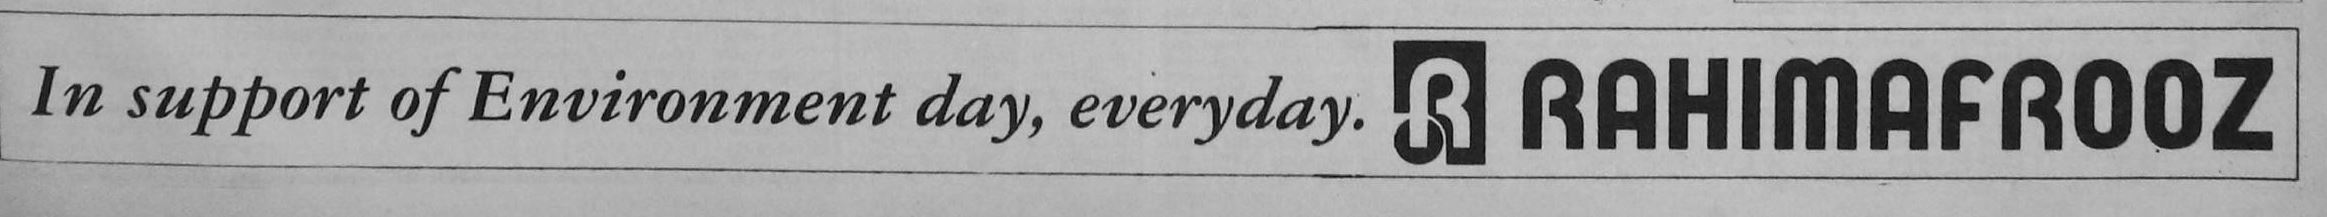 In support of Environment day, everyday. R RAHIMAFROOZ